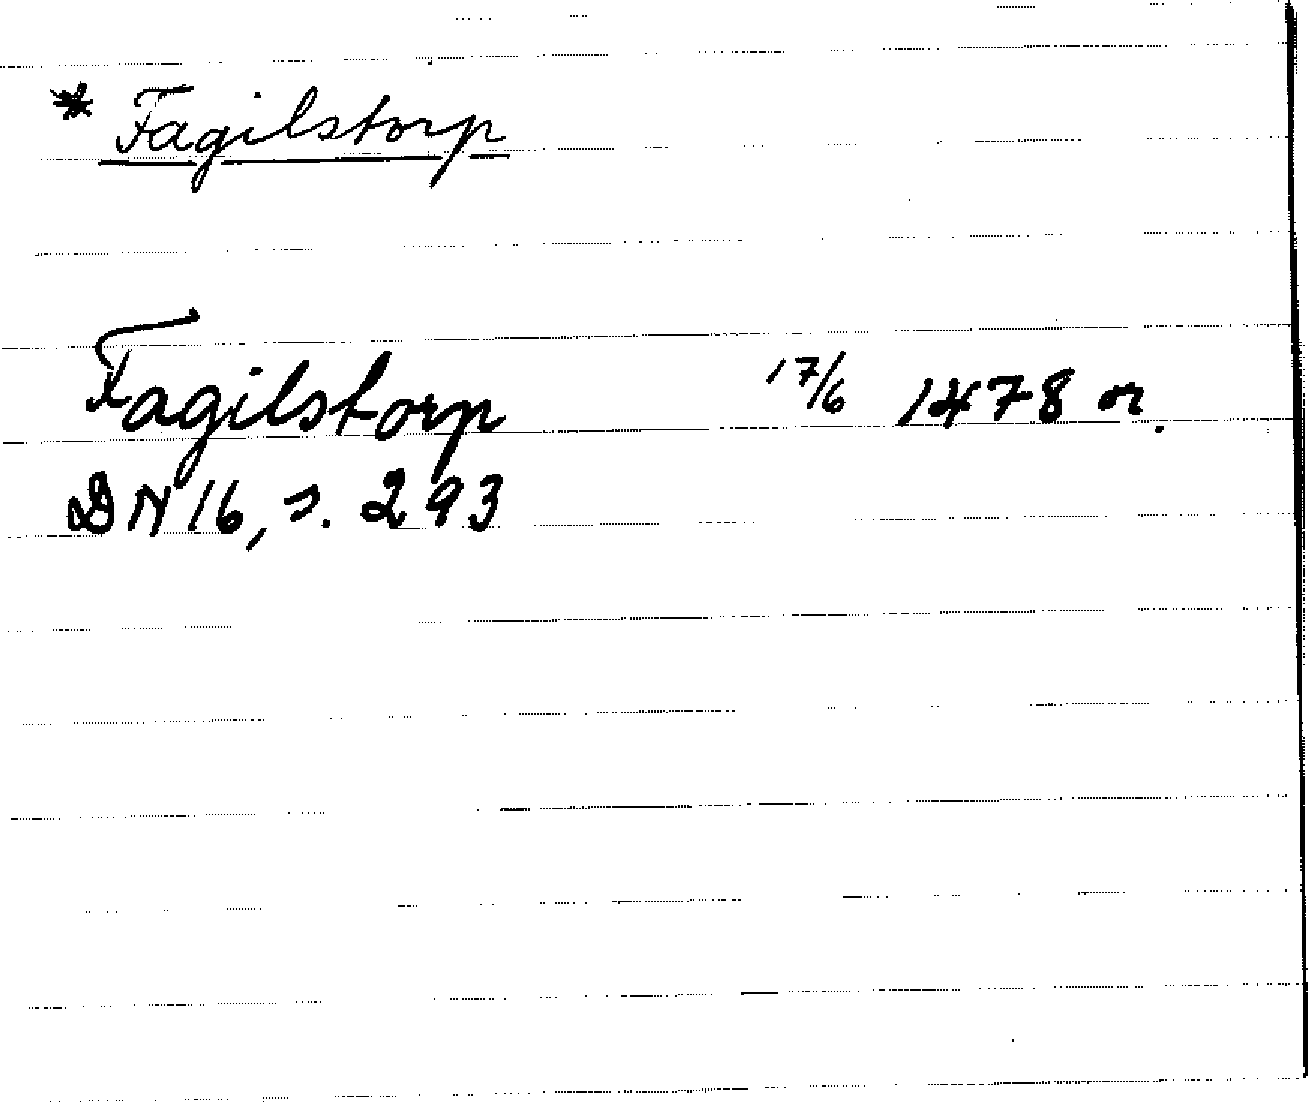 * Fagilstorp
Fagilstorp 17/6 1478 or.
DN 16, s. 293